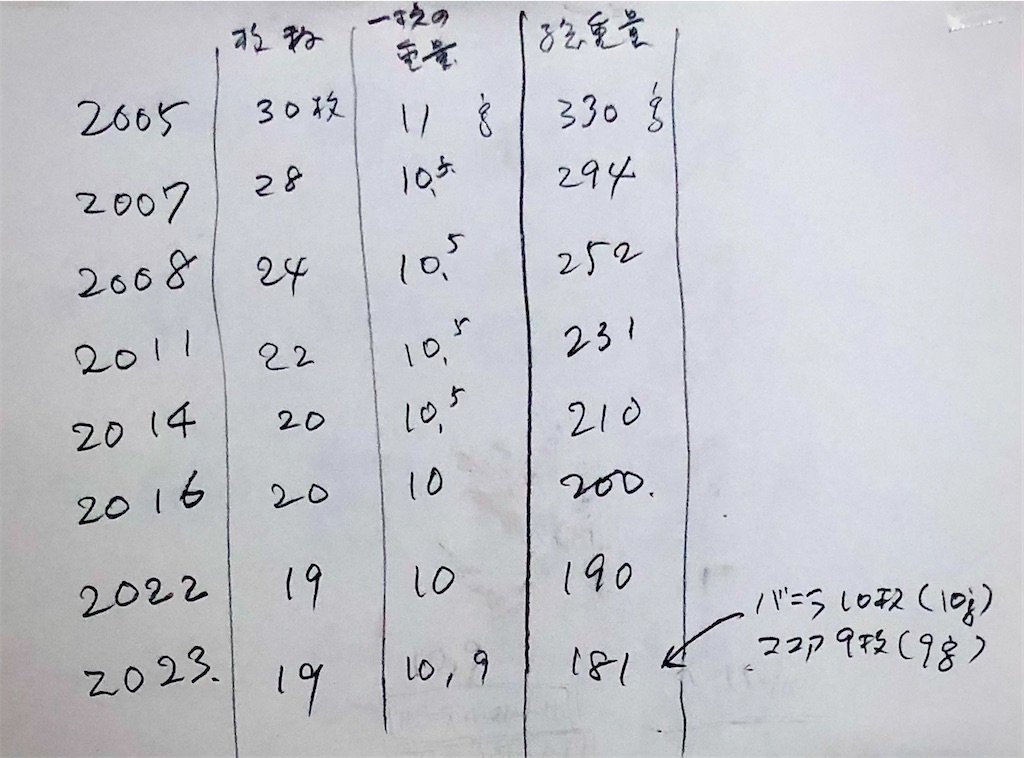 枚数 一枚の重量 総重量
2005 30枚 11g 330g
2007 28 10.5 294
2008 24 10.5 252
2011 22 10.5 231
2014 20 10.5 210
2016 20 10 200.
2022 19 10 190
バニラ10枚(10g)
2023. 19 10,9 181
ココア9枚(9g)